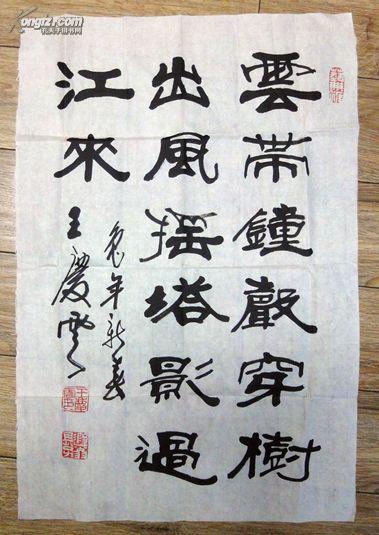 雲帶鐘聲穿樹
出風搖塔影過
江來
兔年新春
王慶雲
kongfz.com
孔夫子旧书网